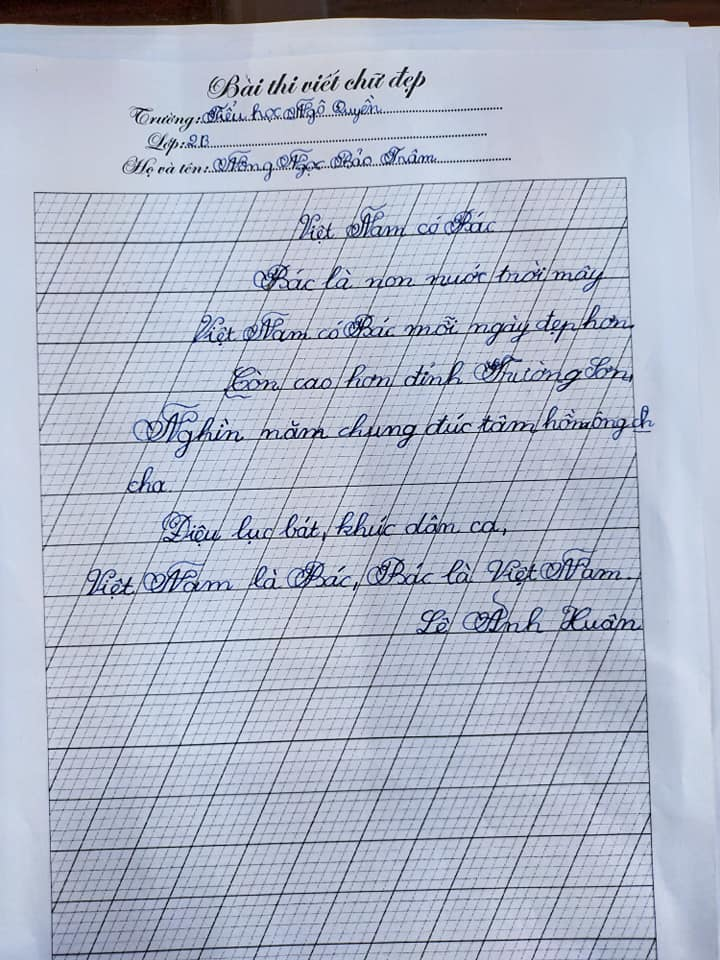 Bài thi viết chữ đẹp
Trường: Tiểu học Ngô Quyền
Lớp: 2B
Họ và tên: Nông Ngọc Bảo Trâm
Việt Nam có Bác
Bác là non nước trời mây
Việt Nam có Bác mỗi ngày đẹp hơn
Còn cao hơn đỉnh Trường Sơn,
Nghìn năm chung đúc tâm hồn ông ch
cha
Diệu lục bát, khúc dân ca,
Việt Nam là Bác, Bác là Việt Nam.
Lê Anh Xuân